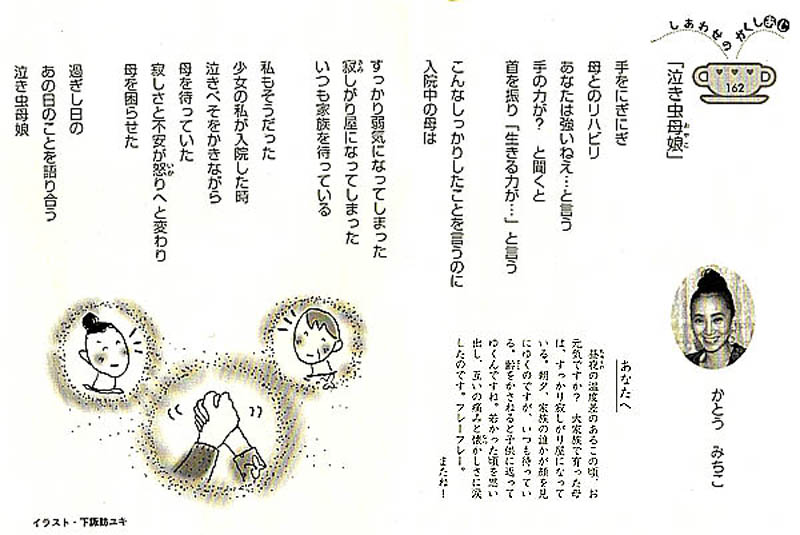 しあわせのかくしあじ
162
「泣き虫母娘」
おやこ
かとう みちこ
手をにぎにぎ
母とのリハビリ
あなたは強いねえ…と言う
手の力が? と聞くと
首を振り「生きる力が…」と言う
こんなしっかりしたことを言うのに
入院中の母は
すっかり弱気になってしまった
寂しがり屋になってしまった
いつも家族を待っている
私もそうだった
少女の私が入院した時
泣きべそをかきながら
母を待っていた
寂しさと不安が怒りへと変わり
母を困らせた
過ぎし日の
あの日のことを語り合う
泣き虫母娘
あなたへ
昼夜の温度差のあるこの頃、お
元気ですか? 大家族で育った母
は、すっかり寂しがり屋になって
いる。朝夕、家族の誰かが顔を見
にゆくのですが、いつも待ってい
る。齢をかさねると子供に返って
ゆくんですね。若かった頃を思い
出し、互いの痛みと懐かしさに涙
したのです。フレーフレー。
またね!
イラスト・下諏訪ユキ